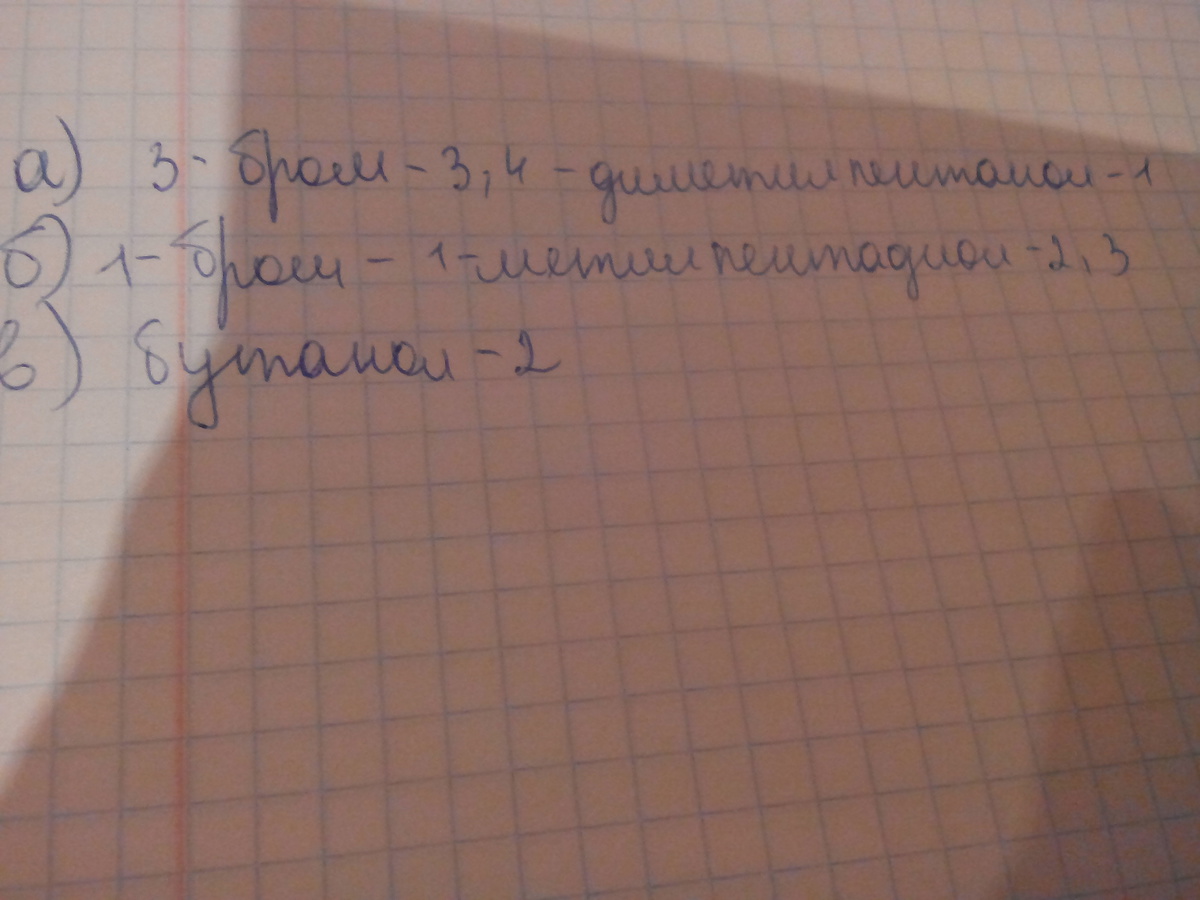 а) 3- бром - 3,4 - диметилпентанол - 1
б) 1- бром - 1-метилпентадиол - 2,3
в) бутанол - 2